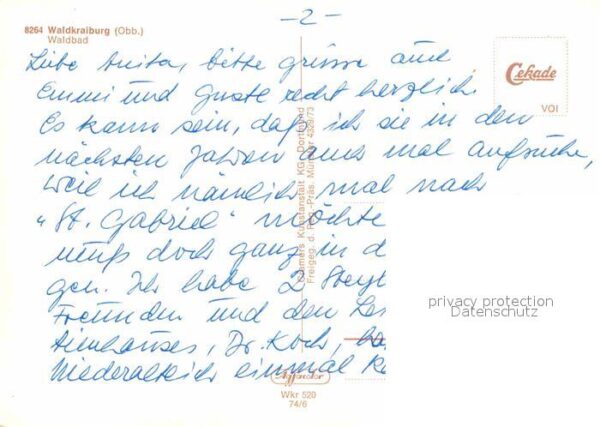 – 2 –
8264 Waldkraiburg (Obb.)
Waldbad
Cekade
VOI
Liebe Anita, bitte grüsse auch
Emmi und Guste recht herzlich.
Es kann sein, daß ich sie in den
nächsten Jahren auch mal aufsuche,
weil ich nämlich mal nach
"St. Gabriel" möchte
muß doch ganz in d
gen. Ich habe 2 Steyl
Freunden und den Le
, Dr. Koch, ha
Niederalteich einmal ke
Cramers Kunstanstalt KG, Dortmund
Freigeg. d. Reg.-Präs. Münster 4329/73
privacy protection
Datenschutz
Wkr 520
74/6